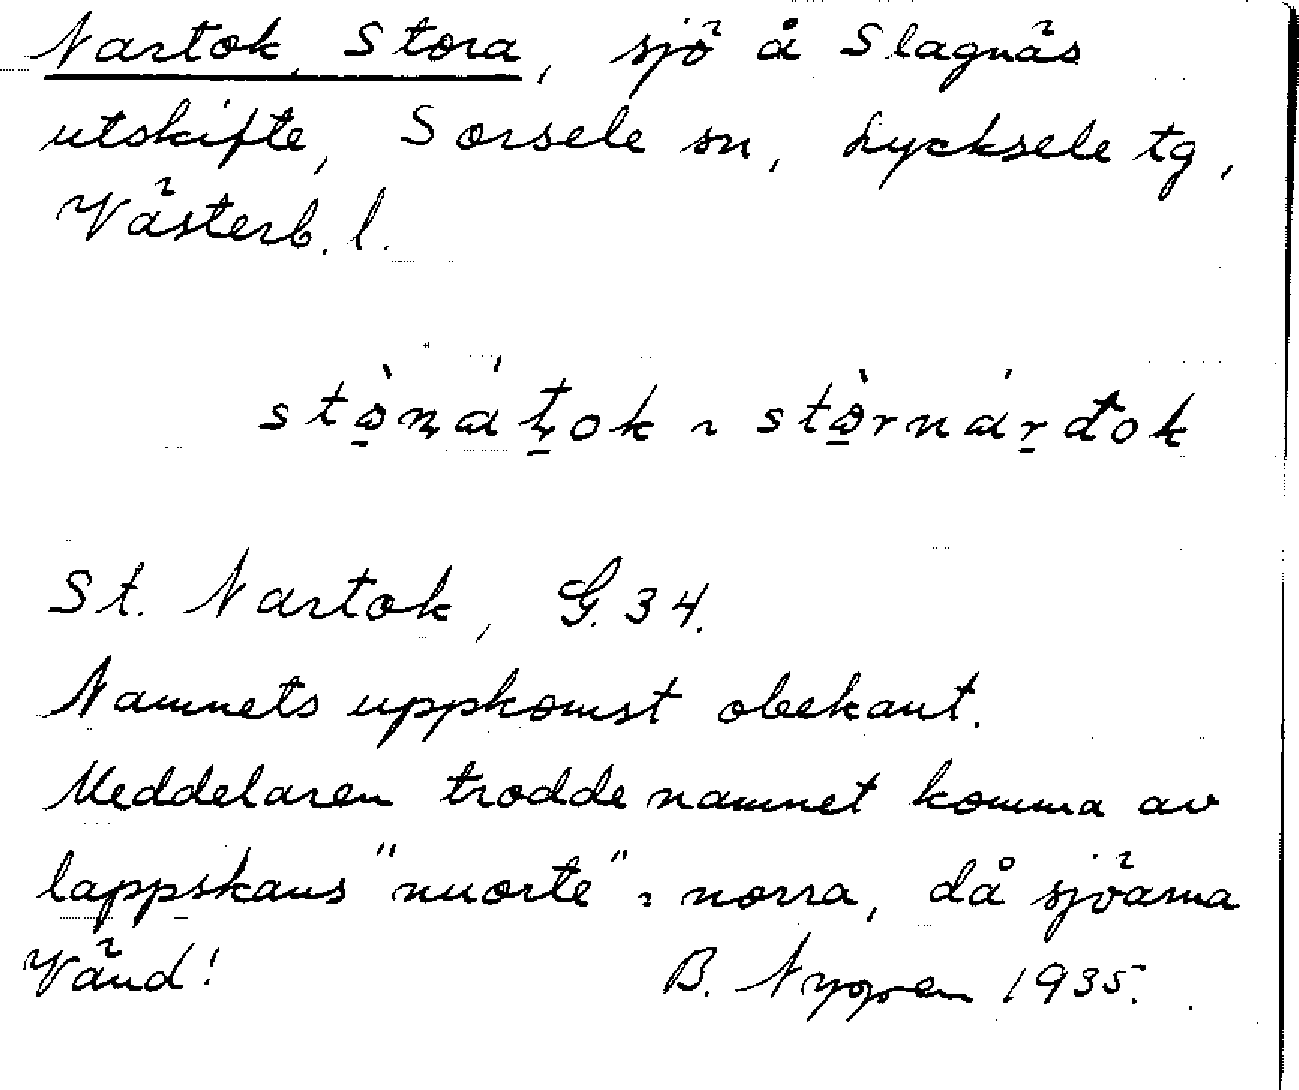 Nartok, Stora, sjö å Slagnäs
utskifte, Sorsele sn, Lycksele tg,
Västerb. l.
St. Nartok, G. 34.
Namnets uppkomst obekant.
Meddelaren trodde namnet komma av
lappskans "nuorte" = norra, då sjöarna
Vänd! B. 1935.